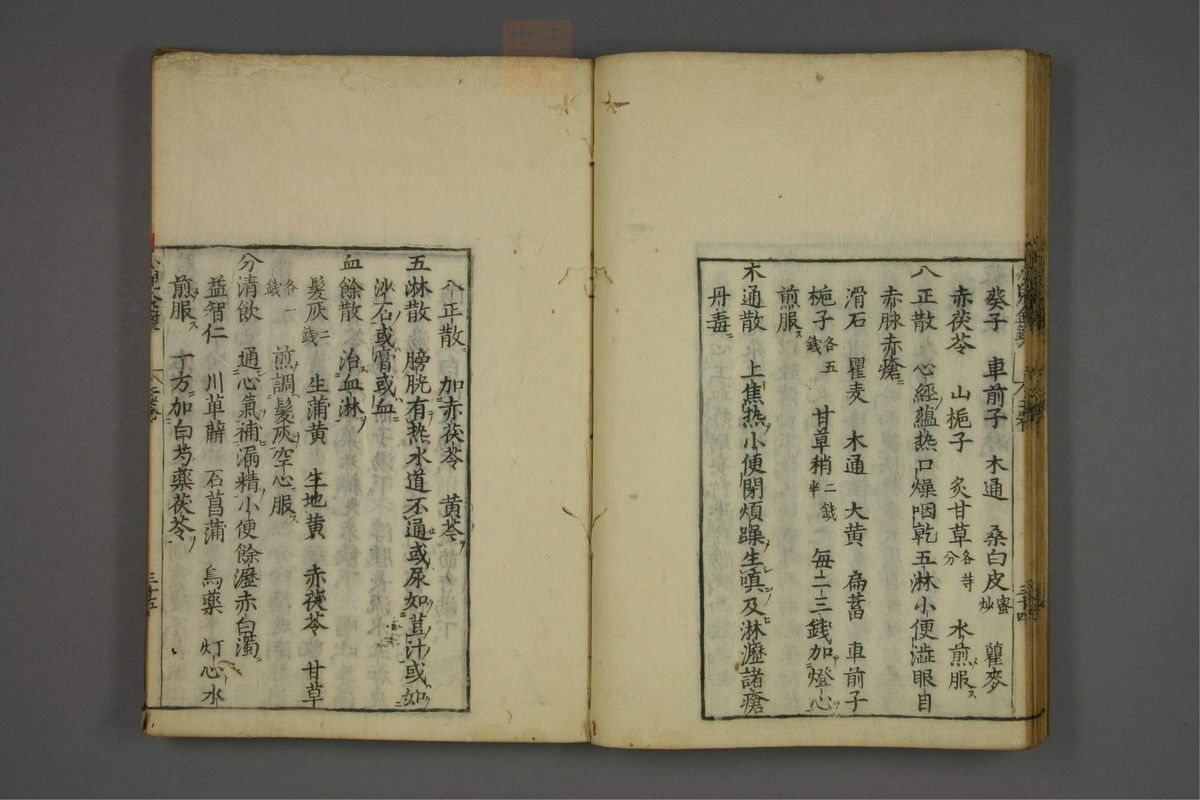 葵子　車前子　木通　桑白皮蜜炒　瞿麥
赤茯苓　山梔子　炙甘草各等分　水煎服ス
八正散　心經蘊熱口燥咽乾五淋小便澁眼目
赤脉赤瘡ニ
滑石　瞿麦　木通　大黄　扁蓄　車前子
梔子各五錢　甘草稍二錢半　每二三錢加燈心
煎服ス
木通散　上焦熱小便閉煩躁生嗔及淋瀝諸瘡
丹毒
八正散ニ　加赤茯苓　黄芩ヲ
五淋散　膀胱有熱水道不通或尿如荳汁或如
沙石或膏或血
血餘散　治血淋ヲ
髮灰二錢　生蒲黄　生地黄　赤茯苓　甘草
各一錢　煎調髮灰空心服ス
分清飲　通心氣補漏精小便餘瀝赤白濁ニ
益智仁　川萆薢　石菖蒲　烏藥　灯心水
煎服ス　一方加白芍藥茯苓ヲ